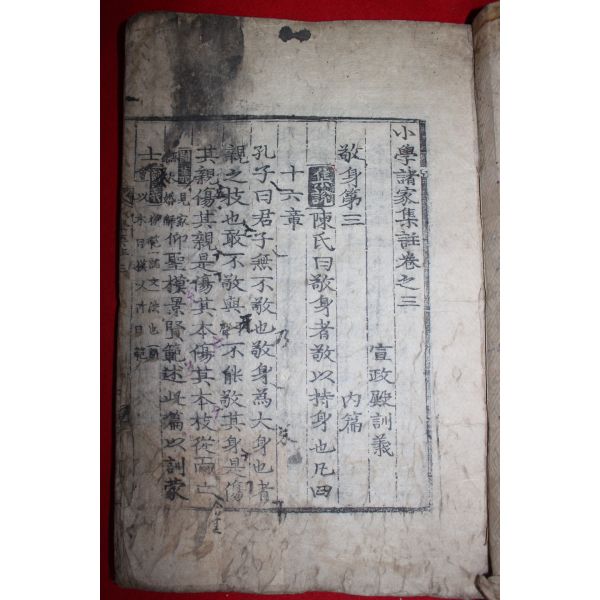 小學諸家集註卷之三
宣政殿訓義
敬身第三 內篇
集說陳氏曰敬身者敬以持身也凡四
十六章
孔子曰君子無不敬也敬身爲大身也者
親之枝也敢不敬與不能敬其身是傷
其親傷其親是傷其本傷其本枝從而亡
仰聖模景賢範述此篇以訓蒙
士